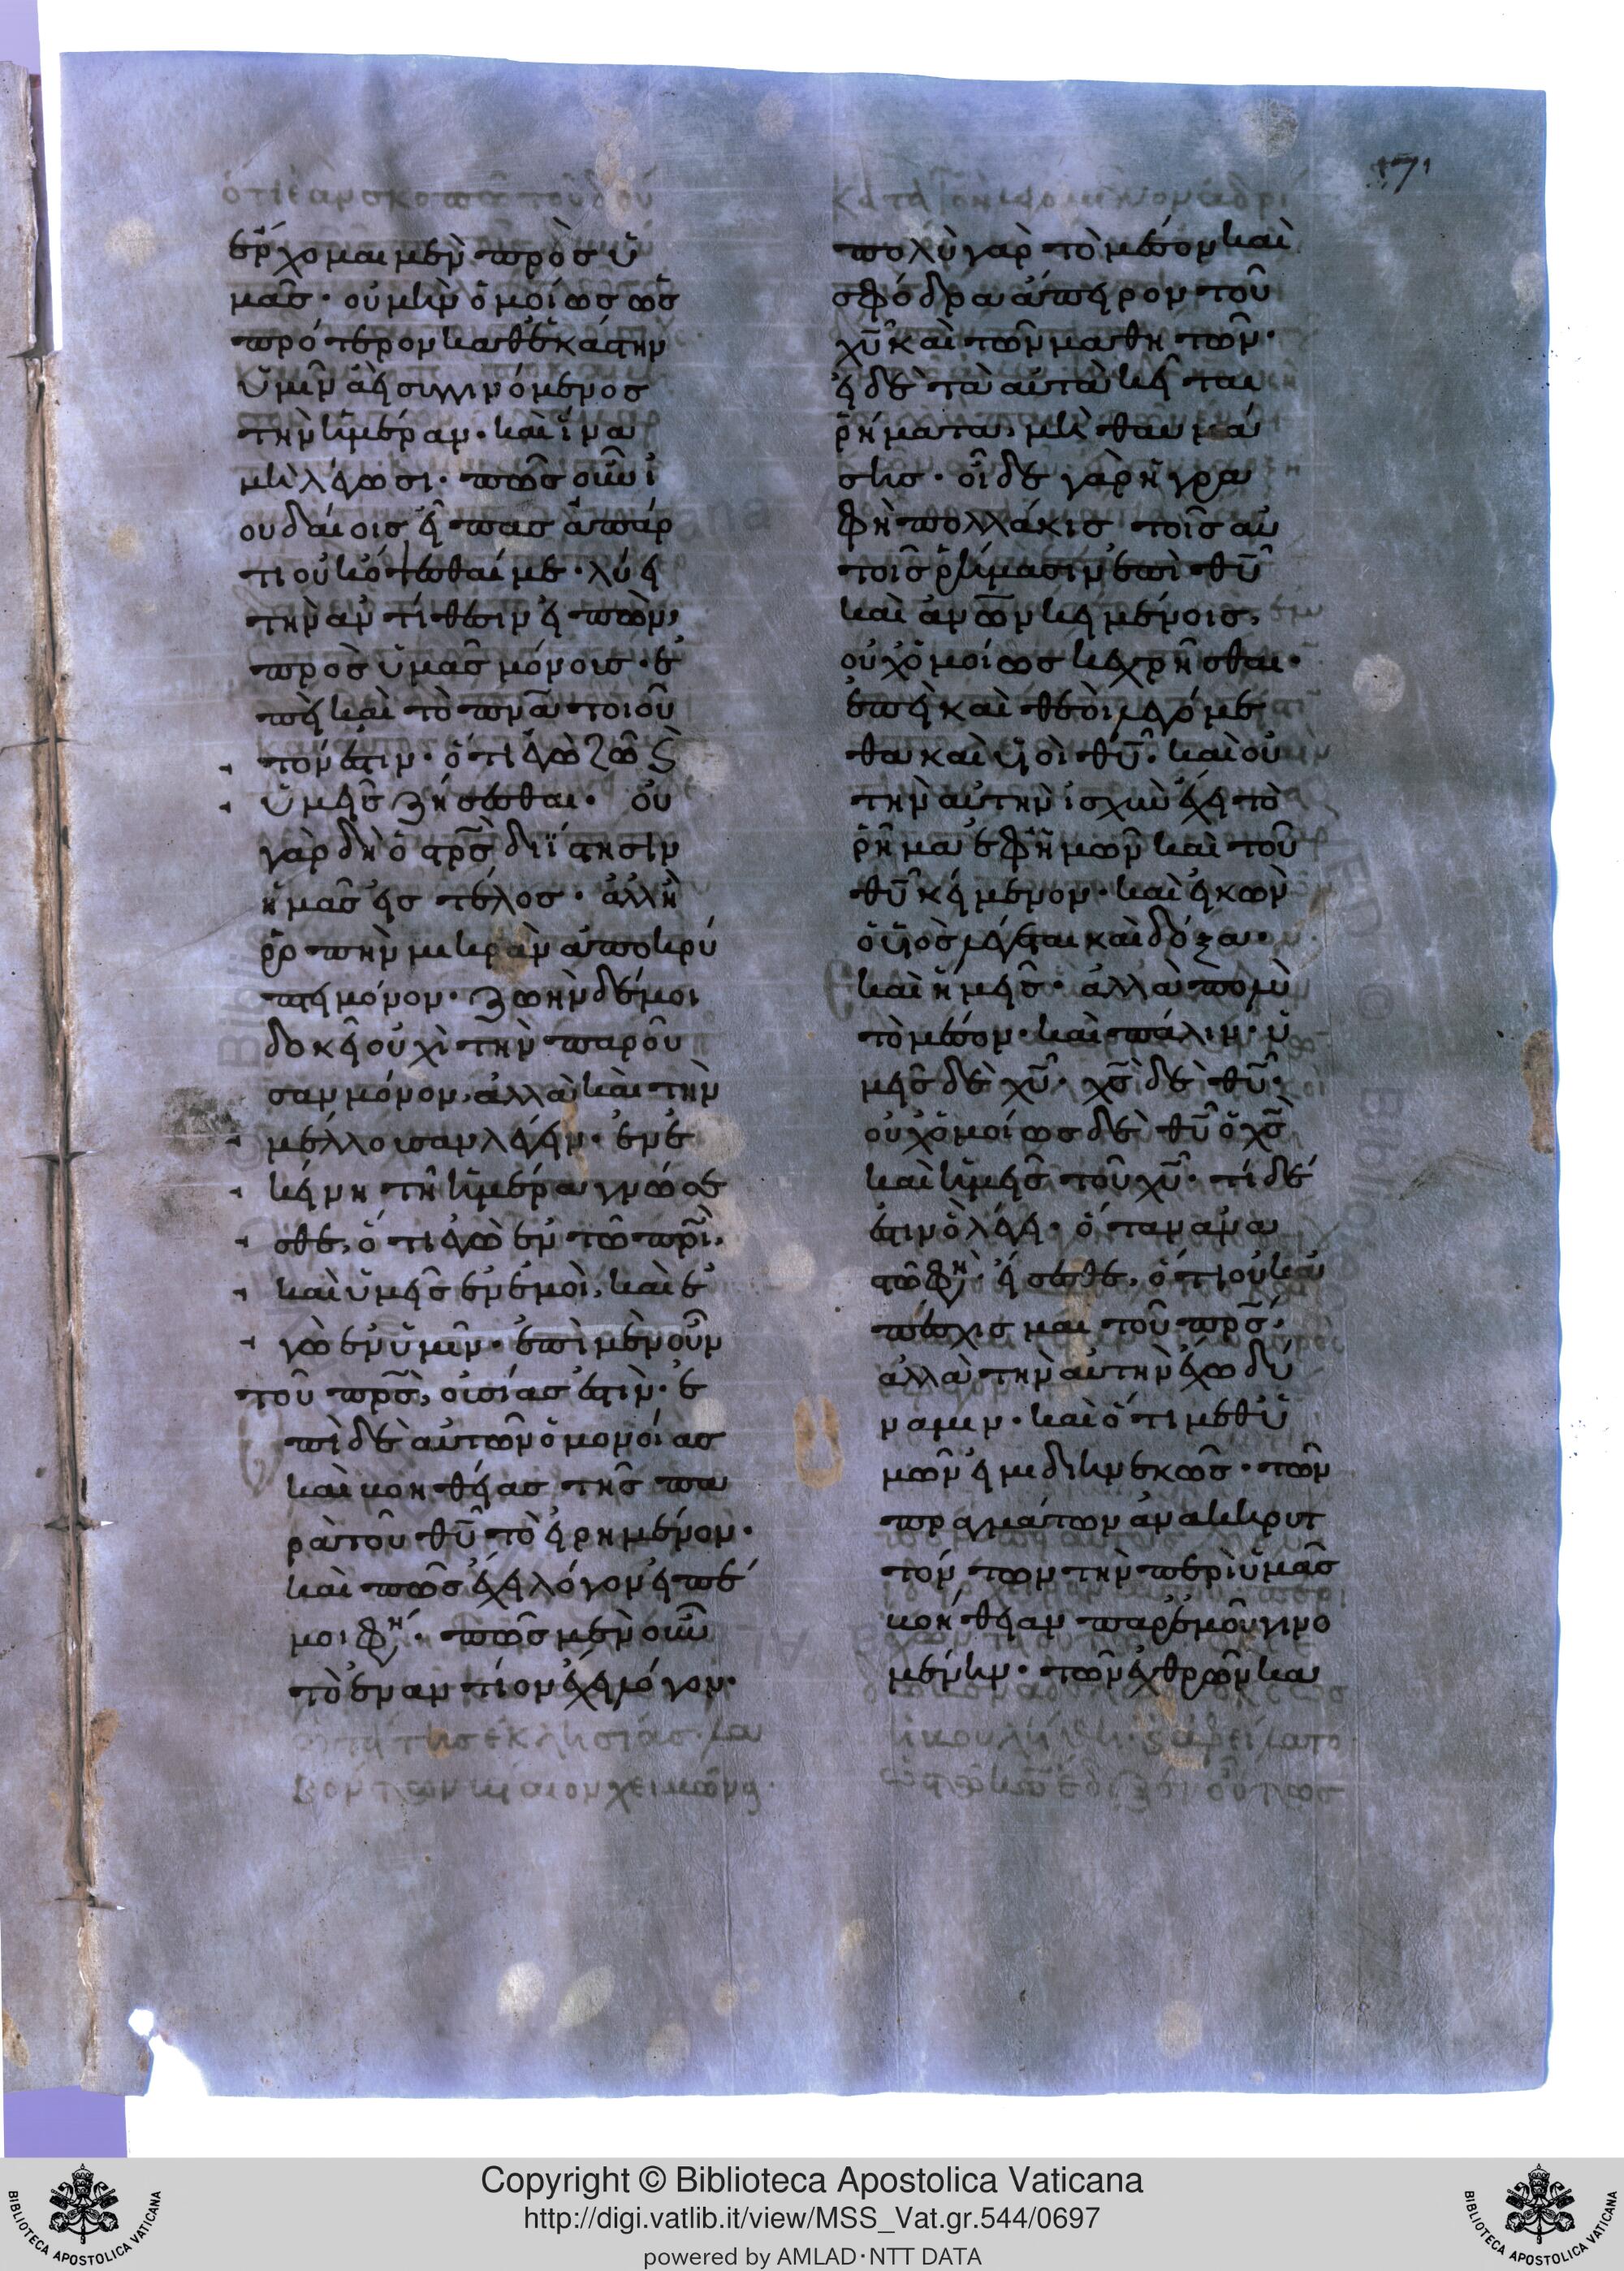 171
ἔρχομαι μὲν πρὸς ὑ
μᾶς· οὐ μὴν ὁμοίως ὡς
πρότερον καθ' ἑκάστην
ὑμῖν ἀεὶ συγγινόμενος
τὴν ἡμέραν· καὶ ἵνα
μὴ λέγωσι· πῶς οὖν ἰ
ουδαίοις εἶπας ἀπάρ
τι οὐκ ὄψεσθαί με· λύει
τὴν ἀντίθεσιν εἰπὼν,
πρὸς ὑμᾶς μόνοις· ἐ
πεὶ καὶ τὸ πνᾶ τοιοῦ
τόν ἐστιν· ὅτι ἐγὼ ζῶ ϛ
ὑμεῖς ζήσεσθαι· οὐ
γὰρ δὴ ὁ στρσ̅ διΐστησιν
ἡμᾶς εἰς τέλος· ἀλλ' ἢ
ῥοπὴν μικρὰν ἀποκρύ
πτει μόνον· ζωὴν δέ μοι
δοκεῖ οὐχὶ τὴν παροῦ
σαν μόνον, ἀλλὰ καὶ τὴν
μέλλουσαν λέγειν· ἐν ἐ
κείνη τῆ ἡμέρα γνώσε
σθε, ὅτι ἐγὼ ἐν τῶ πρι̅,
καὶ ὑμεῖς ἐν ἐμοὶ, καὶ ἐ
γὼ ἐν ὑμῖν· ἐπὶ μὲν οὖν
τοῦ πρσ̅, οὐσίας ἐστὶν· ἐ
πὶ δὲ αὐτῶν ὁμονοίας
καὶ βοηθείας τῆς πα
ρὰ τοῦ θυ̅ τὸ εἰρημένον·
καὶ πῶς ἔχει λόγον εἰπέ
μοι φη· πῶς μὲν οὖν
τὸ ἐναντίον ἔχει λόγον·
πολὺ γὰρ τὸ μέσον καὶ
σφόδρα ἄπειρον τοῦ
χυ̅ καὶ τῶν μαθητῶν·
εἰ δὲ τὰ αὐτὰ κεῖται
ῥήματα, μὴ θαυμά
σης· οἶδε γὰρ ἡ γρα
φὴ πολλάκις τοῖς αὐ
τοῖς ῥήμασιν ἐπὶ θυ̅
καὶ ἀνων̅ κειμένοις,
οὐχ ὁμοίως κεχρῆσθαι·
ἐπεὶ καὶ θεοὶ λεγόμε
θα καὶ υἱοὶ θυ̅· καὶ οὐ
τὴν αὐτὴν ἰσχὺν ἔχει τὸ
ῥῆμα ἐφ' ἡμῶν καὶ τοῦ
θυ̅ κείμενον· καὶ εἰκὼν
ὁ υἱὸς λέγεται καὶ δόξα·
καὶ ἡμεῖς· ἀλλὰ πολὺ
τὸ μέσον· καὶ πάλιν· ὑ
μεῖς δὲ χυ̅· χσ̅ δὲ θυ̅·
οὐχ ὁμοίως δὲ θυ̅ ὁ χσ̅
καὶ ἡμεῖς τοῦ χυ̅· τί δέ
ἐστιν ὃ λέγει· ὅταν ἀνα
στῶ φη· εἴσεσθε, ὅτι οὐκ ἀ
πέσχισμαι τοῦ πρσ̅,
ἀλλὰ τὴν αὐτὴν ἔχω δύ
ναμιν· καὶ ὅτι μεθ' ὑ
μῶν εἰμι διηνεκῶς· τῶν
πραγμάτων ἀνακηρυτ
τόντων τὴν περὶ ὑμᾶς
βοήθειαν παρ' ἐμοῦ γινο
μένην· τῶν ἐχθρῶν κα
Copyright © Biblioteca Apostolica Vaticana
http://digi.vatlib.it/view/MSS_Vat.gr.544/0697
powered by AMLAD·NTT DATA
BIBLIOTECA APOSTOLICA VATICANA
BIBLIOTECA APOSTOLICA VATICANA